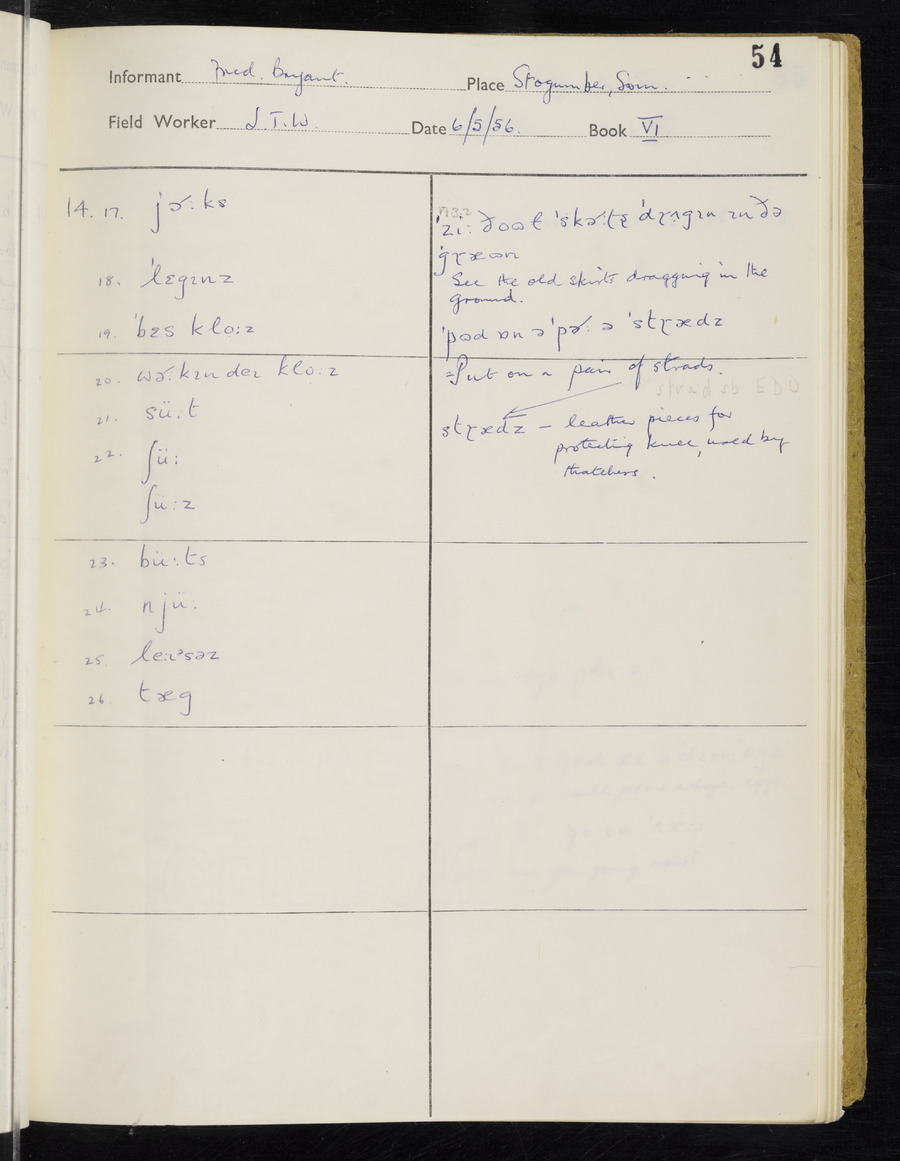 54
Informant Fred. Bryant.
Place Stogumber, Som.
Field Worker S.T.W.
Date 6/5/56.
Book VI
14. 17. jɚ:ks
18. ˈlɛgɪnz
19. ˈbɛs klo:z
20. wɚ:kɪn deɪ klo:z
21. sü:t
22. ʃü:
ʃü:z
23. bü:ts
24. njü:
25. le:ɪᵊsəz
26. tæg
See the old skirts dragging in the
ground.
ˈpəd ɒn ə ˈpɚ: ə ˈstɽædz
=Put on a pair of strads.
strad sb EDD
stɽædz – leather pieces for
protecting knee, used by
thatchers.